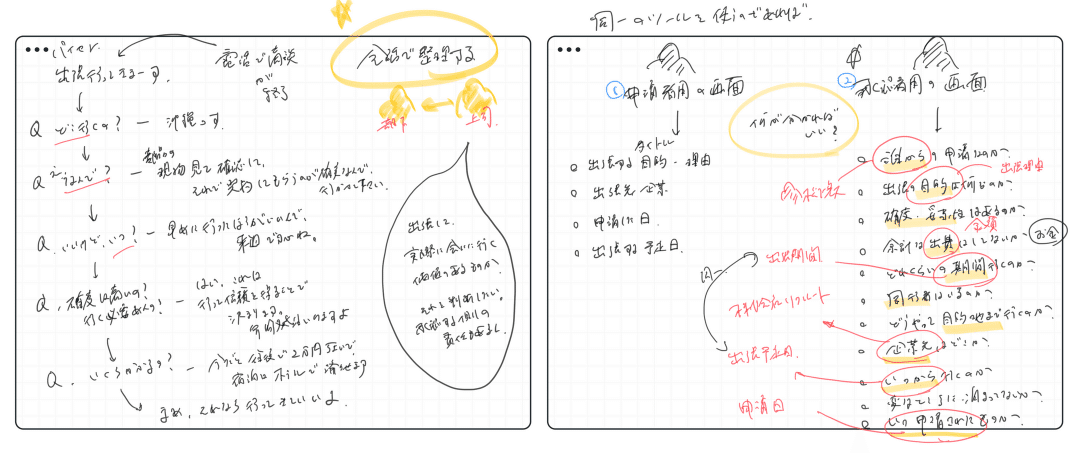 バイヤー
出張行ってきまーす。
電話で商談
が
終了
会話で整理する
部下
上司
Q どこ行くの？ー沖縄っす。
なんで？ー
現物見て確認して、
それで契約にもらうのが確実なんで、
Q. いいけど、いつ？ー早めに行けたほうがいいんで、
来週ですかね。
Q. 確度は高いの？
行く必要あんの？ー
はい、これは
行って信頼を得ることで
決まります。
Q. いくらかかるの？ー
往復で2万円
まあ、それなら行ってきていいよ。
出張して
実際に会いに行く
価値があるのか？
それを判断したい。
承認する側の
責任もあるし
同一のツールを使うのであれば
① 申請者用の画面
タイトル
出張する目的・理由
出張先企業
申請日
出張する予定日
何が分かれば
いい？
② 承認者用の画面
誰からの申請なのか？
出張の目的は何なのか？
出張理由
確度・妥当性はあるのか？
金額
余計な出費はしてないか？
お金
どれくらいの期間行くのか？
同行者はいるのか？
どうやって目的地まで行くのか？
企業先はどこか？
いつから行くのか？
いつ申請されたものか？
出張期間
出張予定日
申請日